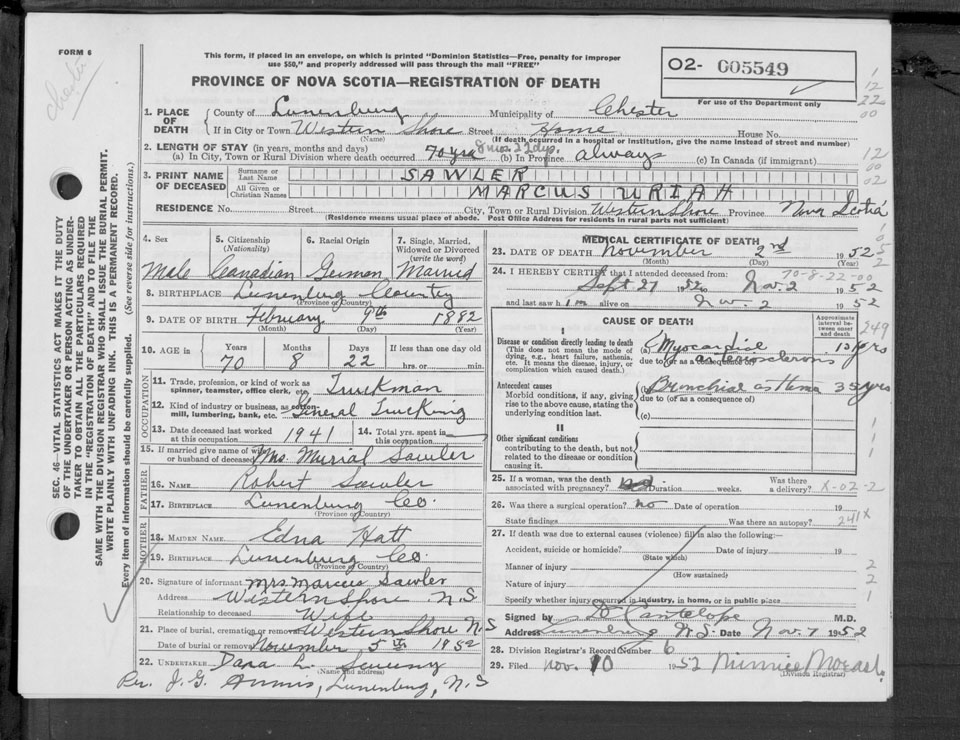 FORM 6
Chester
This form, if placed in an envelope, on which is printed "Dominion Statistics—Free, penalty for improper
use $50," and properly addressed will pass through the mail "FREE"
PROVINCE OF NOVA SCOTIA—REGISTRATION OF DEATH
02- 005549
For use of the Department only
1. PLACE OF DEATH County of Lunenburg Municipality of Chester
If in City or Town Western Shore Street Home House No.
(Name) (If death occurred in a hospital or institution, give the name instead of street and number)
2. LENGTH OF STAY (in years, months and days)
(a) In City, Town or Rural Division where death occurred 70 yrs 8 mos 22 dys. (b) In Province always (c) In Canada (if immigrant)
3. PRINT NAME OF DECEASED Surname or Last Name SAWLER
All Given or Christian Names MARCUS URIAH
RESIDENCE No. Street City, Town or Rural Division Western Shore Province Nova Scotia
(Residence means usual place of abode. Post Office Address for residents in rural parts not sufficient)
SEC. 46—VITAL STATISTICS ACT MAKES IT THE DUTY
OF THE UNDERTAKER OR PERSON ACTING AS UNDER-
TAKER TO OBTAIN ALL THE PARTICULARS REQUIRED
IN THE "REGISTRATION OF DEATH" AND TO FILE THE
SAME WITH THE DIVISION REGISTRAR WHO SHALL ISSUE THE BURIAL PERMIT.
WRITE PLAINLY WITH UNFADING INK. THIS IS A PERMANENT RECORD.
Every item of information should be carefully supplied. (See reverse side for instructions.)
4. Sex 5. Citizenship (Nationality) 6. Racial Origin 7. Single, Married, Widowed or Divorced (write the word)
Male Canadian German Married
8. BIRTHPLACE Lunenburg Country
(Province or Country)
9. DATE OF BIRTH February 9th 1882
(Month) (Day) (Year)
10. AGE in Years Months Days If less than one day old
70 8 22 hrs. or min.
OCCUPATION
11. Trade, profession, or kind of work as spinner, teamster, office clerk, etc. Truckman
12. Kind of industry or business, as cotton-mill, lumbering, bank, etc. General Trucking
13. Date deceased last worked at this occupation 1941 14. Total yrs. spent in this occupation
15. If married give name of wife or husband of deceased Mrs. Murial Sawler
FATHER
16. NAME Robert Sawler
17. BIRTHPLACE Lunenburg Co
(Province or Country)
MOTHER
18. MAIDEN NAME Edna Hatt
19. BIRTHPLACE Lunenburg Co.
(Province or Country)
20. Signature of informant Mrs Marcus Sawler
Address Western Shore N.S.
Relationship to deceased Wife
21. Place of burial, cremation or removal Western Shore N.S
Date of burial or removal November 5th 1952
22. UNDERTAKER Dana L. Sweeny
(Name and address)
Per. J. G. Lunenburg, N.S
MEDICAL CERTIFICATE OF DEATH
23. DATE OF DEATH November 2nd 1952
(Month) (Day) (Year)
24. I HEREBY CERTIFY that I attended deceased from: 70-8-22-00
Sept 27 1952 to Nov. 2 1952
and last saw him alive on Nov. 2 1952
CAUSE OF DEATH
Approximate interval between onset and death
249
I
Disease or condition directly leading to death
(This does not mean the mode of dying, e.g., heart failure, asthenia, etc. It means the disease, injury, or complication which caused death.)
(a) Myocardial 15 yrs
due to (or as a consequence of) arteriosclerosis
Antecedent causes
Morbid conditions, if any, giving rise to the above cause, stating the underlying condition last.
(b) Bronchial asthma 35 yrs
due to (or as a consequence of)
(c)
II
Other significant conditions
contributing to the death, but not related to the disease or condition causing it.
25. If a woman, was the death associated with pregnancy? Duration weeks. Was there a delivery? X-02-2
26. Was there a surgical operation? no Date of operation 19
State findings Was there an autopsy? 241X
27. If death was due to external causes (violence) fill in also the following:—
Accident, suicide or homicide? Date of injury 19
(State which)
Manner of injury
(How sustained)
Nature of injury
Specify whether injury occurred in industry, in home, or in public place
Signed by D Cantelope M.D.
Address Lunenburg N.S. Date Nov. 7 1952
28. Division Registrar's Record Number 6
29. Filed Nov. 10 1952
(Division Registrar)